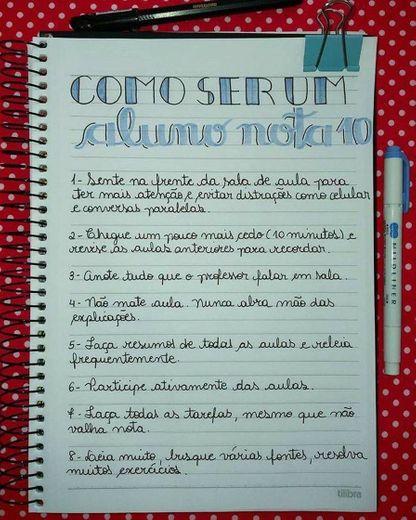 COMO SER UM
aluno nota 10
1- Sente na frente da sala de aula para
ter mais atenção e evitar distrações como celular
e conversas paralelas.
2- Chegue um pouco mais cedo (10 minutos) e
revise as aulas anteriores para recordar.
3- Anote tudo que o professor falar em sala.
4- Não mate aula. Nunca abra mão das
explicações.
5- Faça resumos de todas as aulas e releia
frequentemente.
6- Participe ativamente das aulas.
7- Faça todas as tarefas, mesmo que não
valha nota.
8- Leia muito, busque várias fontes, resolva
muitos exercícios.
tilibra
MIDLINER